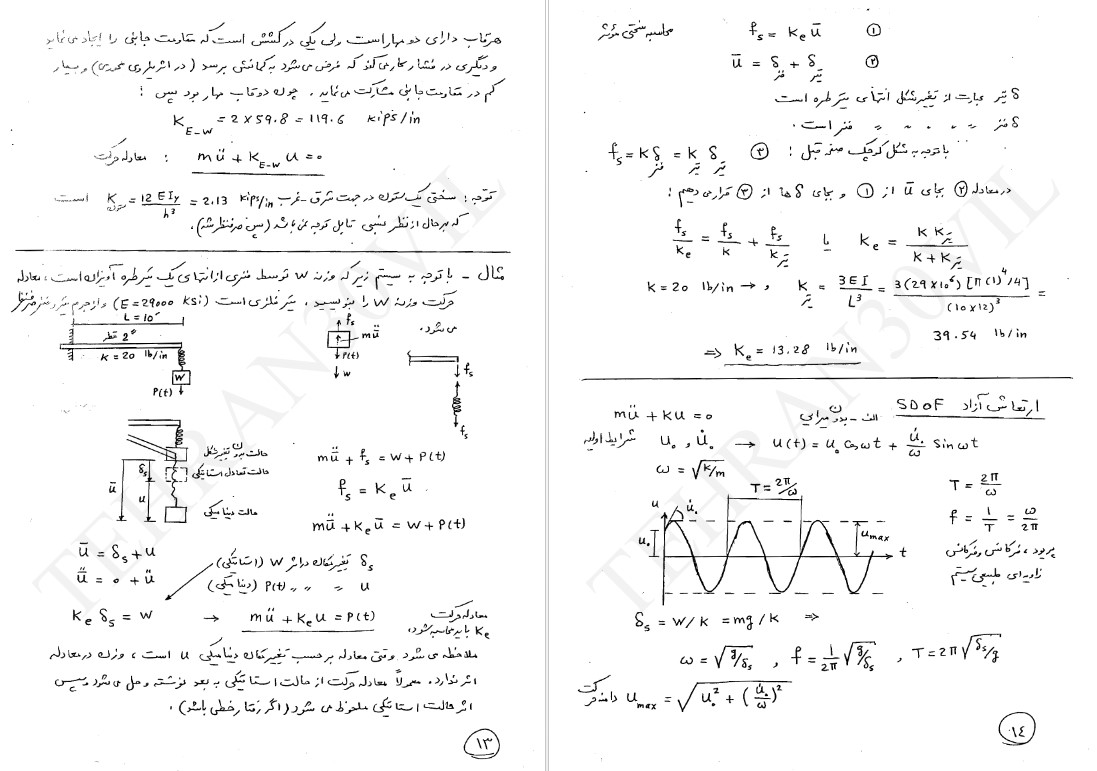 هر قاب دارای دو مهار است ولی یکی در کشش است که مقاومت جانبی را ایجاد می نماید
و دیگری در فشار کار می کند که فرض می شود به کمانش برسد (در اثر نیروی محوری) و بسیار
کم در مقاومت جانبی مشارکت می نماید. چون دو قاب مهار بود پس :
K_{E-W} = 2 × 59.8 = 119.6 kips/in
معادله حرکت : mü + K_{E-W} u = 0
توجه : سختی یک ستون در جهت شرق - غرب K_{ستون} = 12 E I_y / h³ = 2.13 kips/in است
که بهرحال از نظر نسبی قابل توجه نمی باشد (پس صرفنظر شد).
مثال - با توجه به سیستم زیر که وزن W توسط فنری از انتهای یک تیر طره آویزان است، معادله
حرکت وزن W را بنویسید. تیر فلزی است (E = 29000 ksi) و از جرم تیر و فنر صرفنظر
می شود.
L = 10'
قطر 2"
K = 20 lb/in
W
P(t)
f_s
mǖ
P(t)
W
f_s
f_s
حالت بدون تغییر شکل
حالت تعادل استاتیکی
حالت دینامیکی
ū
δ_s
u
mǖ + f_s = W + P(t)
f_s = K_e ū
mǖ + K_e ū = W + P(t)
ū = δ_s + u
ǖ = 0 + ü
δ_s تغییر مکان در اثر W (استاتیکی)
u 〃 〃 P(t) (دینامیکی)
K_e δ_s = W → mü + K_e u = P(t)
معادله حرکت
K_e باید محاسبه شود.
ملاحظه می شود وقتی معادله بر حسب تغییر مکان دینامیکی u است، وزن در معادله
اثر ندارد. معمولاً معادله حرکت از حالت استاتیکی به بعد نوشته و حل می شود و سپس
اثر حالت استاتیکی ملحوظ می شود (اگر رفتار خطی باشد).
۱۳
محاسبه سختی مؤثر f_s = K_e ū ①
ū = δ_{فنر} + δ_{تیر} ②
δ تیر عبارت از تغییر شکل انتهای تیر طره است
δ فنر 〃 〃 〃 〃 فنر است.
با توجه به شکل کوچک صفحه قبل : ③ f_s = K δ_{فنر} = K_{تیر} δ_{تیر}
در معادله ② بجای ū از ① و بجای δ ها از ③ قرار می دهیم :
f_s/K_e = f_s/K + f_s/K_{تیر} یا K_e = K K_{تیر} / (K + K_{تیر})
K = 20 lb/in → و K_{تیر} = 3EI/L³ = 3(29×10⁶)[π(1)⁴/4] / (10×12)³ =
39.54 lb/in
⇒ K_e = 13.28 lb/in
ارتعاش آزاد SDOF الف - بدون میرایی mü + Ku = 0
شرایط اولیه u₀ و u̇₀ → u(t) = u₀ Cos ωt + (u̇₀/ω) Sin ωt
ω = √(K/m)
T = 2π/ω
u
u̇₀
u₀
u_max
t
T = 2π/ω
f = 1/T = ω/2π
پریود، فرکانس و فرکانس
زاویه ای طبیعی سیستم
δ_s = W/K = mg/K ⇒
ω = √(g/δ_s) , f = (1/2π)√(g/δ_s) , T = 2π√(δ_s/g)
دامنه حرکت u_max = √(u₀² + (u̇₀/ω)²)
۱۴
TEHRAN30VIL
TEHRAN30VIL